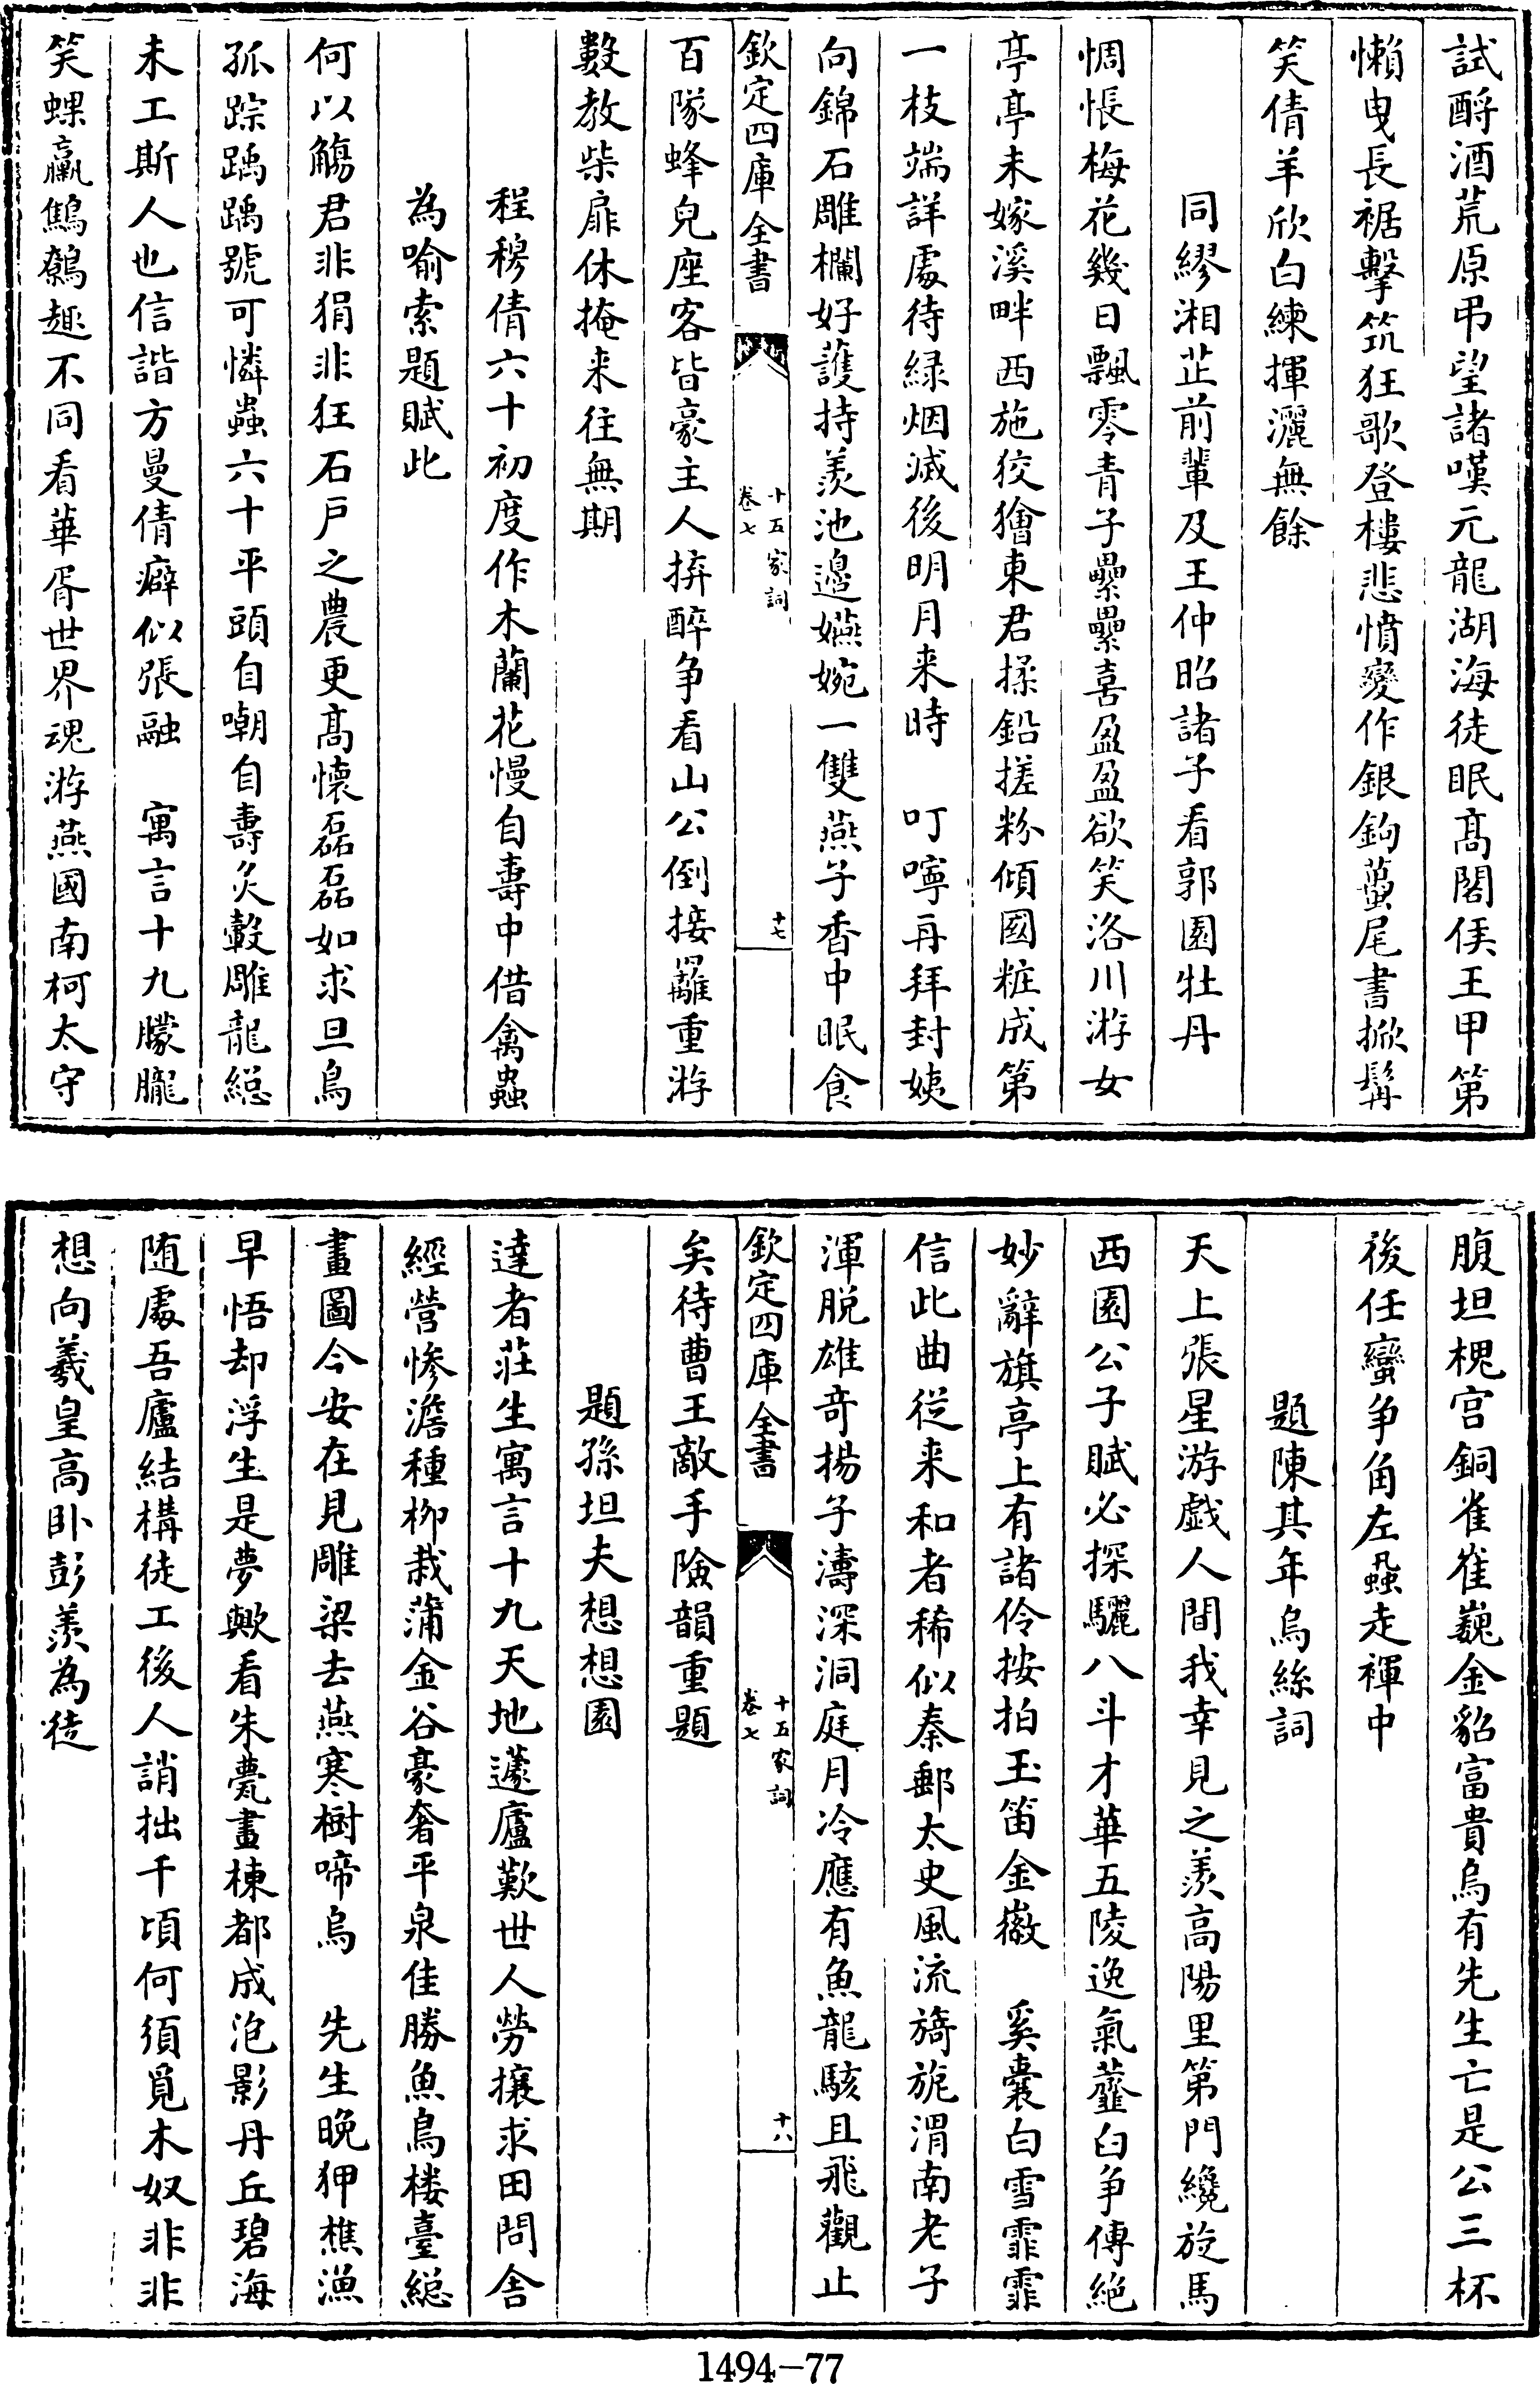 試酹酒荒原弔望諸嘆元龍湖海徒眠髙閣侯王甲第
懶曳長裾擊筑狂歌登樓悲憤變作銀鉤蠆尾書掀髯
笑倩羊欣白練揮灑無餘
同繆湘芷前輩及王仲昭諸子看郭園牡丹
惆悵梅花幾日飄零青子纍纍喜盈盈欲笑洛川游女
亭亭未嫁溪畔西施狡獪東君揉鉛搓粉傾國粧成第
一枝端詳處待緑烟滅後明月来時　叮嚀再拜封姨
向錦石雕欄好䕶持羨池邉嬿婉一雙燕子香中眠食
欽定四庫全書
十五家詞
卷七
十七
百隊蜂兒座客皆豪主人拚醉争看山公倒接䍦重游
數教柴扉休掩来往無期
程穆倩六十初度作木蘭花慢自壽中借禽蟲
為喻索題賦此
何以觴君非狷非狂石戸之農更髙懐磊磊如求旦鳥
孤踪踽踽號可憐蟲六十平頭自嘲自壽炙轂雕龍縂
未工斯人也信諧方曼倩癖似張融　寓言十九朦朧
笑蜾蠃鷦鷯趣不同看華胥世界魂游燕國南柯太守
腹坦槐宫銅雀崔巍金貂富貴烏有先生亡是公三杯
後任蠻争角左蝨走褌中
題陳其年烏絲詞
天上張星游戯人間我幸見之羨高陽里第門纔旋馬
西園公子賦必探驪八斗才華五陵逸氣虀臼争傳絶
妙辭旗亭上有諸伶按拍玉笛金徽　奚囊白雪霏霏
信此曲從来和者稀似秦郵太史風流旖旎渭南老子
渾脱雄竒揚子濤深洞庭月冷應有魚龍駭且飛觀止
欽定四庫全書
十五家詞
卷七
十八
矣待曹王敵手險韻重題
題孫坦夫想想園
達者莊生寓言十九天地蘧廬歎世人勞攘求田問舎
經營惨澹種柳栽蒲金谷豪奢平泉佳勝魚鳥楼臺縂
畫圖今安在見雕梁去燕寒樹啼烏　先生晚狎樵漁
早悟却浮生是夢歟看朱甍畫棟都成泡影丹丘碧海
随處吾廬結構徒工後人誚拙千頃何須覓木奴非非
想向羲皇高卧彭羨為徒
1494-77